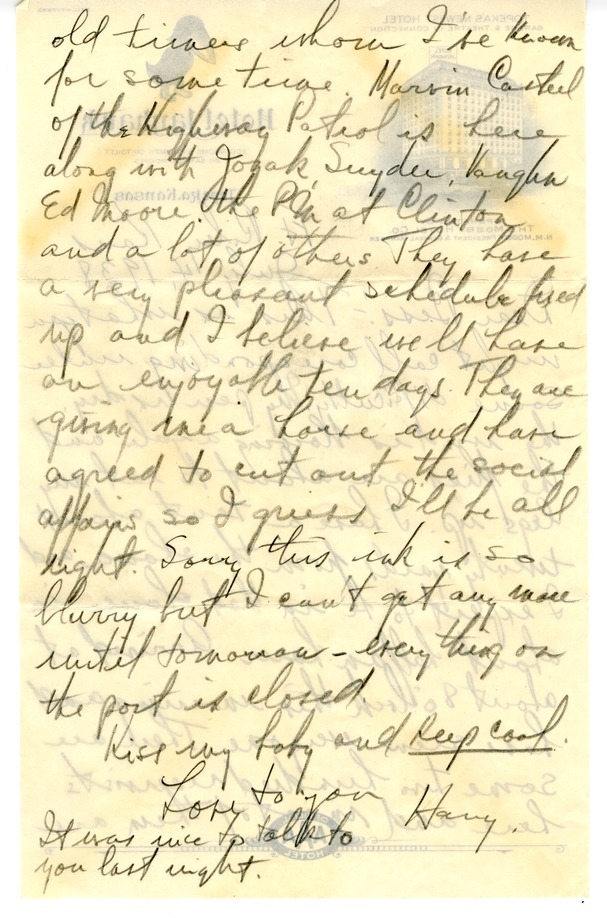 old timers whom I've known
for some time. Marvin Casteel
of the Highway Patrol is here
along with Jobak, Snyder, Vaughn
Ed Moore, the P.M. at Clinton
and a lot of others They have
a very pleasant schedule fixed
up and I believe we'll have
an enjoyable ten days. They are
giving me a horse and have
agreed to cut out the social
affairs so I guess I'll be all
right. Sorry this ink is so
blurry but I can't get any more
until tomorrow - everything on
the post is closed.
Kiss my baby and keep cool.
Love to you Harry.
It was nice to talk to
you last night.